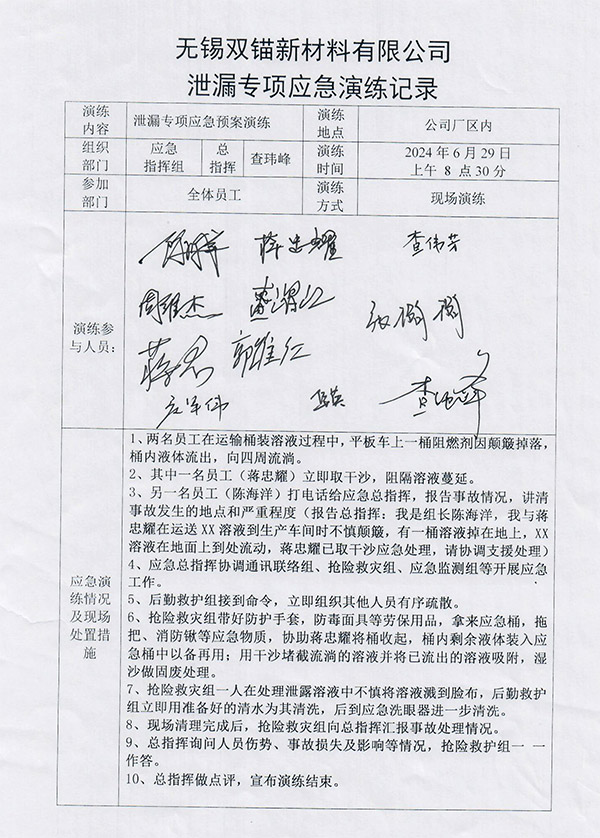 无锡双锚新材料有限公司
泄漏专项应急演练记录
演练内容 泄漏专项应急预案演练 演练地点 公司厂区内
组织部门 应急指挥组 总指挥 查玮峰 演练时间 2024 年 6 月 29 日 上午 8 点 30 分
参加部门 全体员工 演练方式 现场演练
演练参与人员：
蒋忠耀 查伟芳
周维杰
蒋忠 郭维仁
应急演练情况及现场处置措施
1、两名员工在运输桶装溶液过程中，平板车上一桶阻燃剂因颠簸掉落，
桶内液体流出，向四周流淌。
2、其中一名员工（蒋忠耀）立即取干沙，阻隔溶液蔓延。
3、另一名员工（陈海洋）打电话给应急总指挥，报告事故情况，讲清
事故发生的地点和严重程度（报告总指挥：我是组长陈海洋，我与蒋
忠耀在运送 XX 溶液到生产车间时不慎颠簸，有一桶溶液掉在地上，XX
溶液在地面上到处流动，蒋忠耀已取干沙应急处理，请协调支援处理）
4、应急总指挥协调通讯联络组、抢险救灾组、应急监测组等开展应急
工作。
5、后勤救护组接到命令，立即组织其他人员有序疏散。
6、抢险救灾组带好防护手套，防毒面具等劳保用品，拿来应急桶，拖
把、消防锹等应急物质，协助蒋忠耀将桶收起，桶内剩余液体装入应
急桶中以备再用；用干沙堵截流淌的溶液并将已流出的溶液吸附，湿
沙做固废处理。
7、抢险救灾组一人在处理泄露溶液中不慎将溶液溅到脸布，后勤救护
组立即用准备好的清水为其清洗，后到应急洗眼器进一步清洗。
8、现场清理完成后，抢险救灾组向总指挥汇报事故处理情况。
9、总指挥询问人员伤势、事故损失及影响等情况，抢险救护组一 一
作答。
10、总指挥做点评，宣布演练结束。